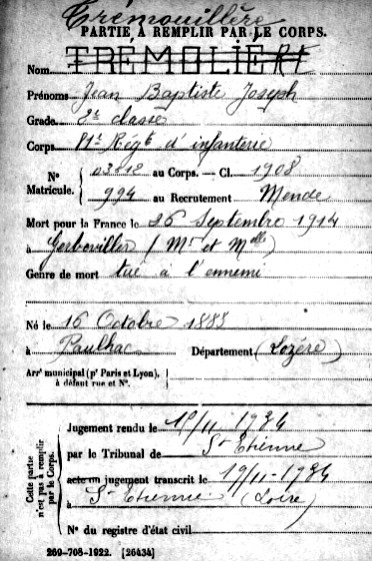 Trémouillère
PARTIE À REMPLIR PAR LE CORPS.
Nom TRÉMOLIÈRE
Prénoms Jean Baptiste Joseph
Grade 2e classe
Corps Régt d'infanterie
Nos Matricule. 03212 au Corps. — Cl. 1908
994 au Recrutement Mende
Mort pour la France le 26 Septembre 1914
à Gerbeviller (Mrt et Mlle)
Genre de mort tué à l'ennemi
Né le 16 Octobre 1888
à Paulhac Département (Lozère)
Arrt municipal (pr Paris et Lyon),
à défaut rue et No.
Cette partie n'est pas à remplir par le Corps.
Jugement rendu le 10/11 1934
par le Tribunal de St Etienne
acte ou jugement transcrit le 19/11-1934
à St Etienne (Loire)
No du registre d'état civil
269-708-1922. [26434]